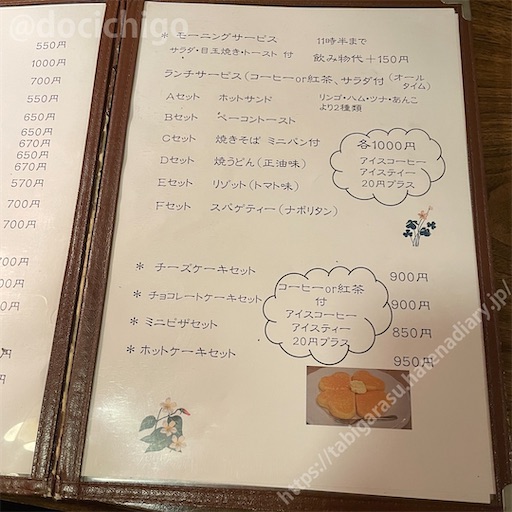 @docichigo
550円
1000円
700円
550円
650円
650円
670円
650円
670円
570円
700円
700円
700円
00円
0円
円
円
* モーニングサービス 11時半まで
サラダ・目玉焼き・トースト 付 飲み物代＋150円
ランチサービス(コーヒーor紅茶、サラダ付(オールタイム)
Aセット ホットサンド リンゴ・ハム・ツナ・あんこ
より2種類
Bセット ベーコントースト
Cセット 焼きそば ミニパン付
Dセット 焼うどん(正油味)
Eセット リゾット(トマト味)
Fセット スパゲティー(ナポリタン)
各1000円
アイスコーヒー
アイスティー
20円プラス
* チーズケーキセット 900円
* チョコレートケーキセット 900円
* ミニピザセット 850円
* ホットケーキセット 950円
コーヒーor紅茶
付
アイスコーヒー
アイスティー
20円プラス
https://tabigarasu.hatenadiary.jp/